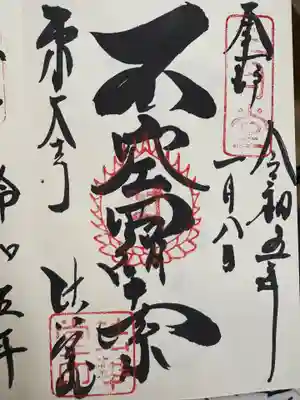 奉拝
令和五年
一月八日
不空羂索
東大寺
法華堂
令和五年